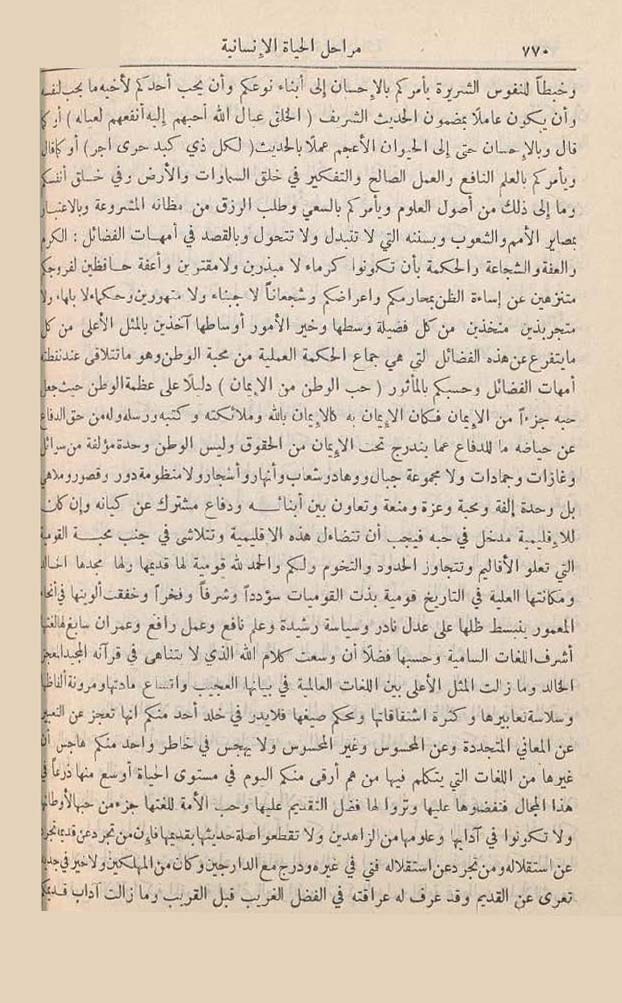 ٧٧٠ مراحل الحياة الإنسانية
وخبطاً للنفوس الشريرة يأمركم بالإحسان إلى أبناء نوعكم وأن يحب أحدكم لأخيه ما يحب لنفسه
وأن يكون عاملاً بمضمون الحديث الشريف ( الخلق عيال الله أحبهم إليه أنفعهم لعياله ) أو كما
قال وبالإحسان حتى إلى الحيوان الأعجم عملاً بالحديث ( لكل ذي كبد حرى اجر ) أو كما قال
ويأمركم بالعلم النافع والعمل الصالح والتفكير في خلق السماوات والأرض وفي خلق أنفسكم
وما إلى ذلك من أصول العلوم ويأمركم بالسعي وطلب الرزق من مظانه المشروعة وبالاعتبار
بمصاير الأمم والشعوب وبسننه التي لا تتبدل ولا تتحول وبالقصد في أمهات الفضائل : الكرم
والعفة والشجاعة والحكمة بأن تكونوا كرماء لا مبذرين ولا مقترين وأعفة حافظين لفروجكم
متنزهين عن إساءة الظن بمحارمكم واعراضكم وشجعاناً لا جبناء ولا متهورين وحكماء لا بلهاء ولا
متجربذين متخذين من كل فضيلة وسطها وخير الأمور أوساطها آخذين بالمثل الأعلى من كل
ما يتفرع عن هذه الفضائل التي هي جماع الحكمة العملية من محبة الوطن وهو ما تتلاقى عند نقطته
أمهات الفضائل وحسبكم بالمأثور ( حب الوطن من الإيمان ) دليلاً على عظمة الوطن حيث جعل
حبه جزءاً من الإيمان فكان الإيمان به كالإيمان بالله وملائكته وكتبه ورسله وله من حق الدفاع
عن حياضه ما للدفاع عما يندرج تحت الإيمان من الحقوق وليس الوطن وحدة مؤلفة من
وغازات وجمادات ولا مجموعة جبال ووهاد وشعاب وأنهار وأشجار ولا منظومة دور وقصور وملاهي
بل وحدة إلفة ومحبة وعزة ومنعة وتعاون بين أبنائه ودفاع مشترك عن كيانه وإن كان
للاقليمية مدخل في حبه فيجب أن تتضاءل هذه الاقليمية وتتلاشى في جنب محبة القومية
التي تعلو الأقاليم وتتجاوز الحدود والتخوم ولكم والحمد لله قومية لها قديمها ولها مجدها الخالد
ومكانتها العلية في التاريخ قومية بذت القوميات سؤدداً وشرفاً وفخراً وخفقت ألويتها في أنحاء
المعمور ينبسط ظلها على عدل نادر وسياسة رشيدة وعلم نافع وعمل رافع وعمران سابغ لها لغتها
أشرف اللغات السامية وحسبها فضلاً أن وسعت كلام الله الذي لا يتناهى في قرآنه المجيد المعجز
الخالد وما زالت المثل الأعلى بين اللغات العالمية في بيانها العجيب واتساع مادتها ومرونة ألفاظها
وسلاسة تعابيرها وكثرة اشتقاقاتها ومحكم صيغها فلا يدر في خلد أحد منكم انها تعجز عن التعبير
عن المعاني المتجددة وعن المحسوس وغير المحسوس ولا يهجس في خاطر واحد منكم هاجس أن
غيرها من اللغات التي يتكلم فيها من هم أرقى منكم اليوم في مستوى الحياة أوسع منها ذرعاً في
هذا المجال فتفضلوها عليها وتروا لها فضل التقديم عليها وحب الأمة للغتها جزء من حبها لأوطانها
ولا تكونوا في آدابها وعلومها من الزاهدين ولا تقطعوا صلة حديثها بقديمها فإن من تجرد عن قديمه تجرد
عن استقلاله ومن تجرد عن استقلاله فني في غيره ودرج مع الدارجين وكان من المهلكين ولا خير في جديد
تعرى عن القديم وقد عرف له عراقته في الفضل الغريب قبل القريب وما زالت آداب قديمكم